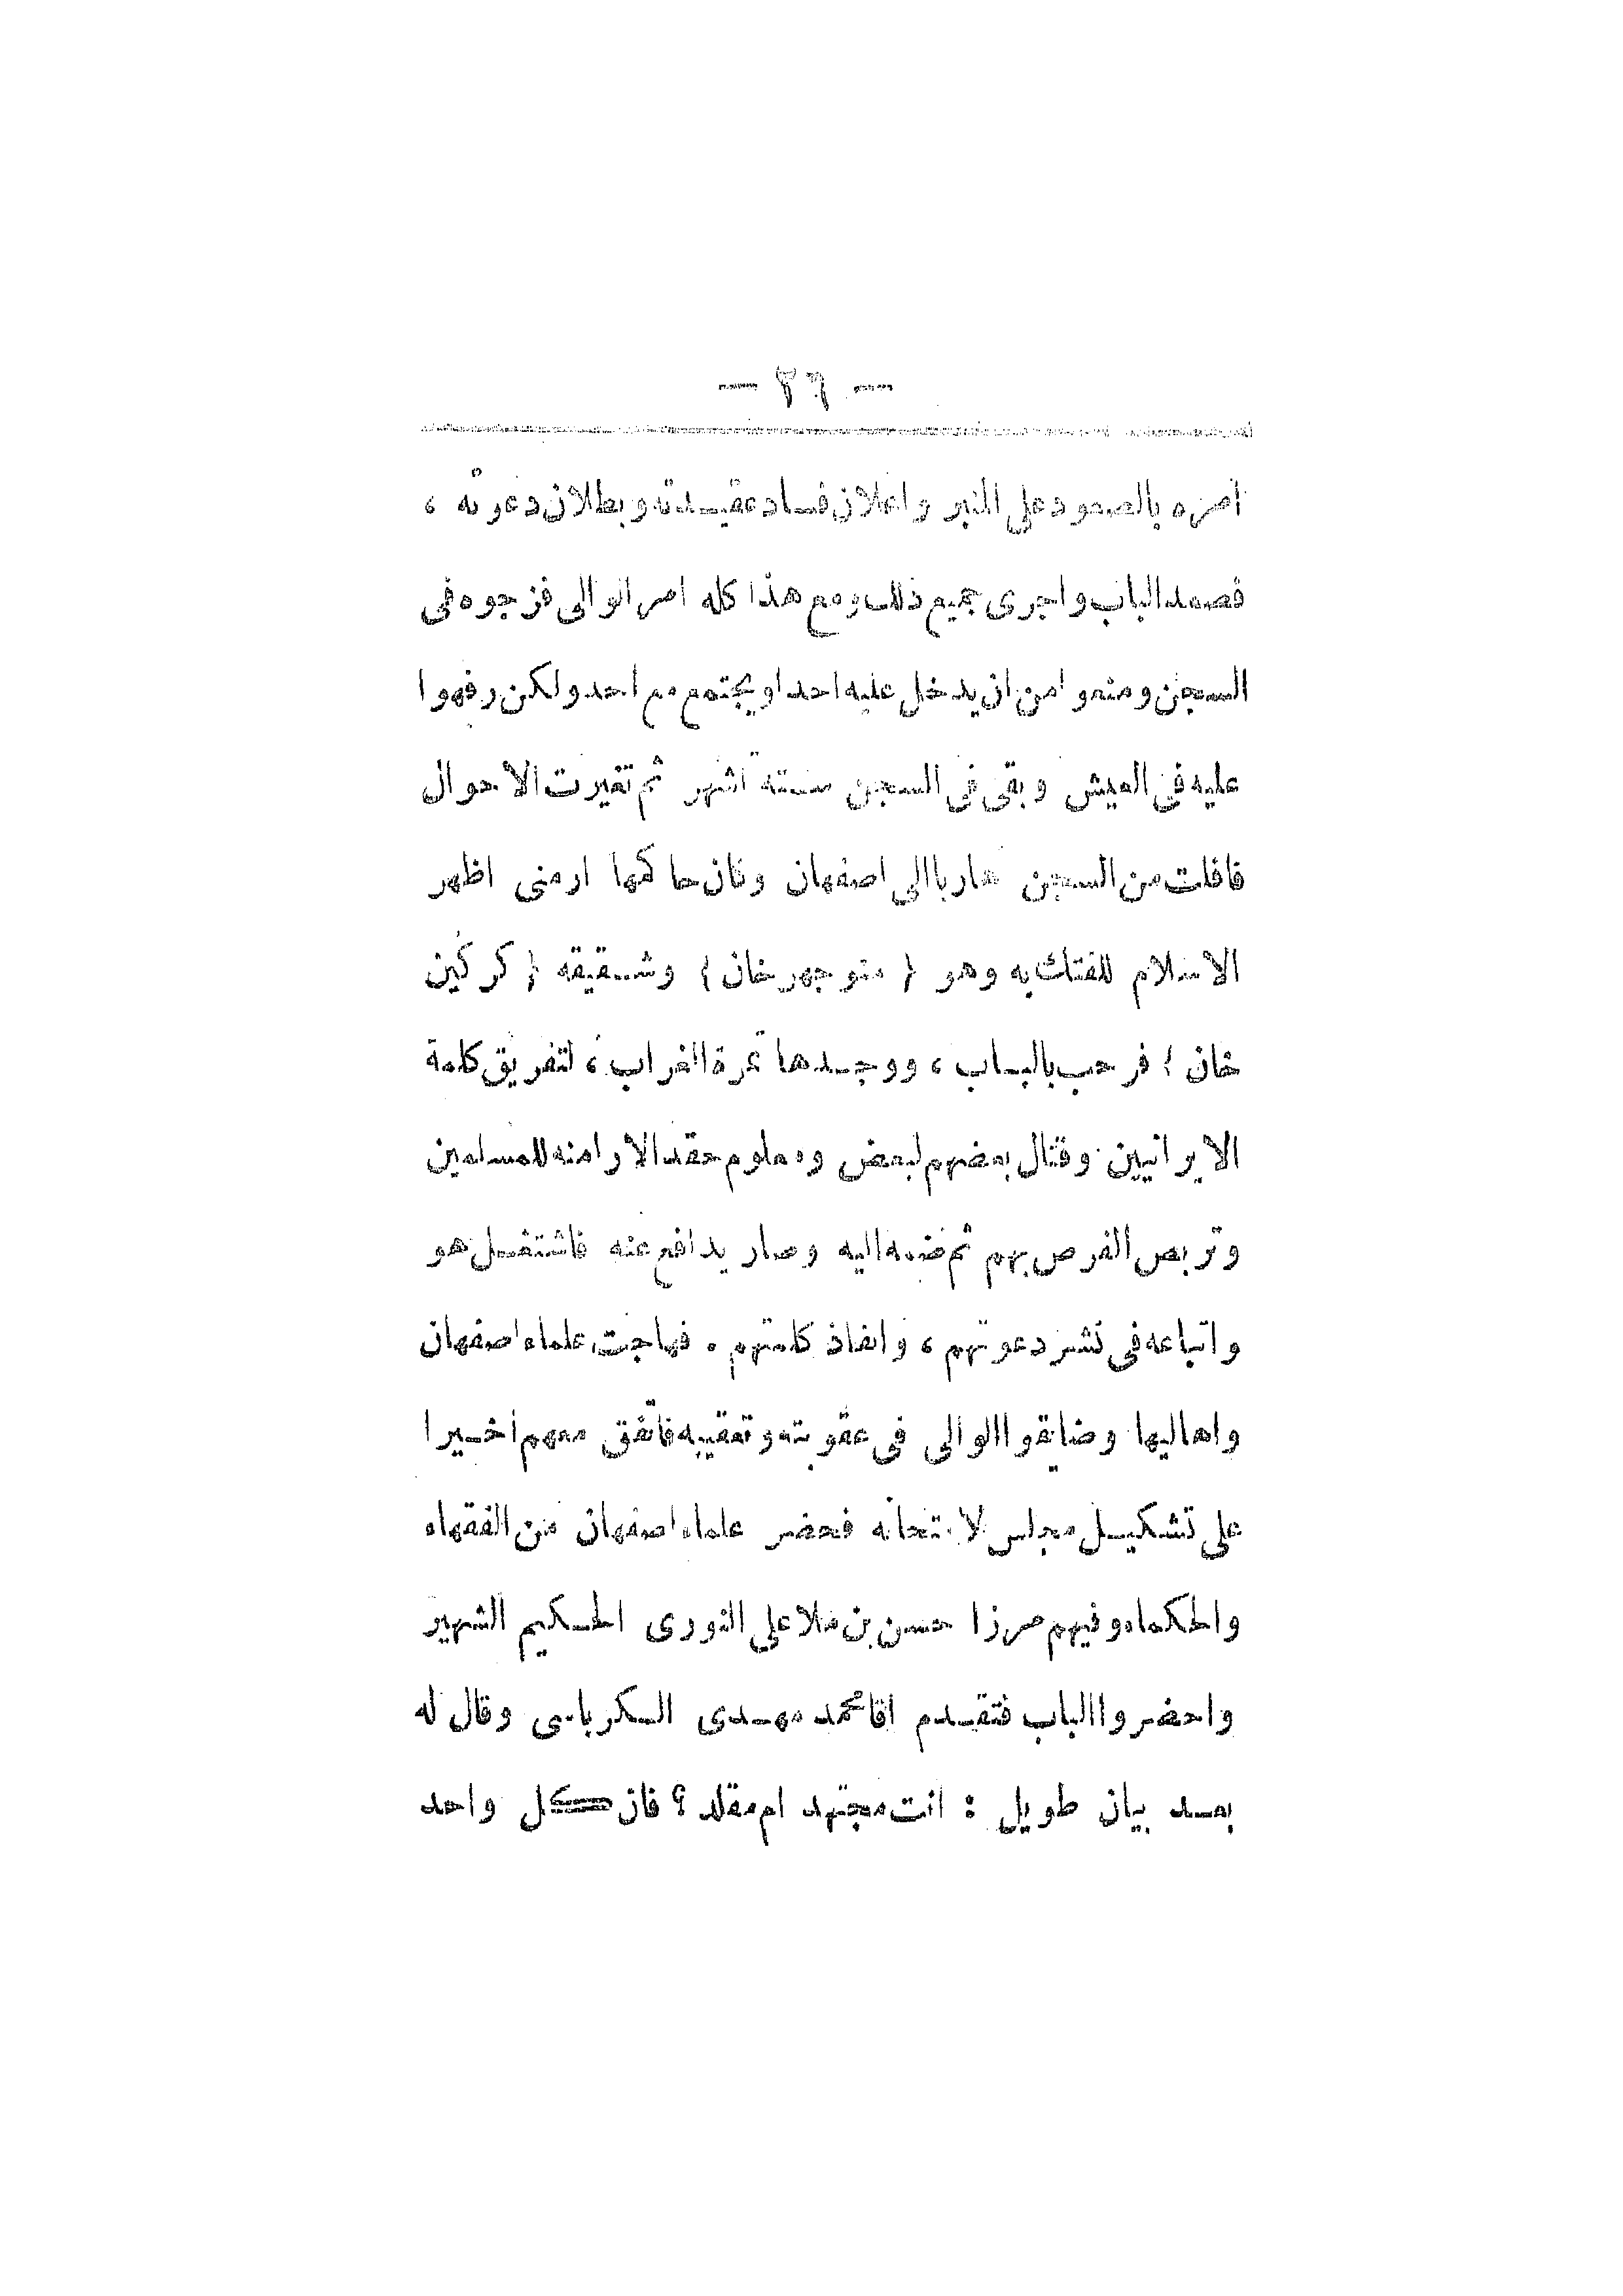 — ٢٦ —
أمره بالصعود على المنبر واعلان فساد عقيدته وبطلان دعوته ،
فصعد الباب واجرى جميع ذلك ومع هذا كله امر الوالى فزجوه فى
السجن ومنعوا من ان يدخل عليه احد او يجتمع مع احد ولكن رفهوا
عليه فى العيش وبقى فى السجن ستة أشهر ثم تغيرت الاحوال
فافلت من السجن هاربا الى اصفهان وكان حاكمها ارمنى اظهر
الاسلام للفتك به وهو ( منوجهر خان ) وشقيقه ( كركين
خان ) فرحب بالباب ، ووجدها تمرة الغراب ، لتفريق كلمة
الايرانيين وقتال بعضهم لبعض ومعلوم حقد الارامنه للمسلمين
وتربص الفرص بهم ثم ضمه اليه وصار يدافع عنه فاشتغل هو
واتباعه فى نشر دعوتهم ، وانفاذ كلمتهم . فهاجت علماء اصفهان
واهاليها وضايقوا الوالى فى عقوبته وتعقيبه فاتفق معهم أخيرا
على تشكيل مجلس لامتحانه فحضر علماء اصفهان من الفقهاء
والحكماء وفيهم مرزا حسن بن ملا على النورى الحكيم الشهير
واحضروا الباب فتقدم اقا محمد مهدى الكرباسى وقال له
بعد بيان طويل : انت مجتهد ام مقلد ؟ فان كل واحد